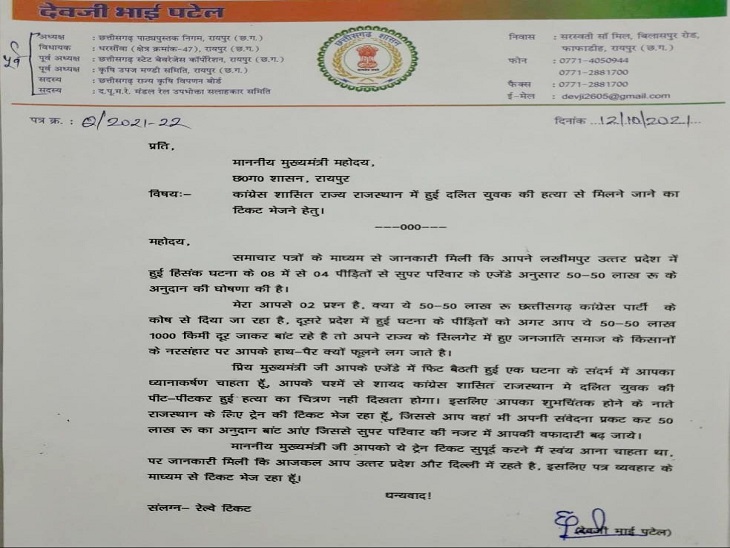 देवजी भाई पटेल
पूर्व
अध्यक्ष : छत्तीसगढ़ पाठ्यपुस्तक निगम, रायपुर (छ.ग.)
विधायक : धरसींवा (क्षेत्र क्रमांक-47), रायपुर (छ.ग.)
पूर्व अध्यक्ष : छत्तीसगढ़ स्टेट बेवरेजेस कॉर्पोरेशन, रायपुर (छ.ग.)
पूर्व अध्यक्ष : कृषि उपज मण्डी समिति, रायपुर (छ.ग.)
सदस्य : छत्तीसगढ़ राज्य कृषि विपणन बोर्ड
सदस्य : द.पू.म.रे. मंडल रेल उपभोक्ता सलाहकार समिति
छत्तीसगढ़ शासन
निवास : सरस्वती सॉ मिल, बिलासपुर रोड,
फाफाडीह, रायपुर (छ.ग.)
फोन : 0771-4050944
0771-2881700
फैक्स : 0771-2881700
ई-मेल : devji2605@gmail.com
पत्र क्र. : Q/2021-22
दिनांक ...12/10/2021...
प्रति,
माननीय मुख्यमंत्री महोदय,
छ०ग० शासन, रायपुर
विषयः– कांग्रेस शासित राज्य राजस्थान में हुई दलित युवक की हत्या से मिलने जाने का
टिकट भेजने हेतु।
---000---
महोदय,
समाचार पत्रों के माध्यम से जानकारी मिली कि आपने लखीमपुर उत्तर प्रदेश में
हुई हिसंक घटना के 08 में से 04 पीड़ितों से सुपर परिवार के एजेंडे अनुसार 50-50 लाख रू के
अनुदान की घोषणा की है।
मेरा आपसे 02 प्रश्न है, क्या ये 50-50 लाख रू छत्तीसगढ़ कांग्रेस पार्टी के
कोष से दिया जा रहा है, दूसरे प्रदेश में हुई घटना के पीड़ितों को अगर आप ये 50-50 लाख
1000 किमी दूर जाकर बांट रहे है तो अपने राज्य के सिलगेर में हुए जनजाति समाज के किसानों
के नरसंहार पर आपके हाथ-पैर क्यों फूलने लग जाते है।
प्रिय मुख्यमंत्री जी आपके एजेंडे में फिट बैठती हुई एक घटना के संदर्भ में आपका
ध्यानाकर्षण चाहता हूँ, आपके चश्में से शायद कांग्रेस शासित राजस्थान मे दलित युवक की
पीट-पीटकर हुई हत्या का चित्रण नही दिखता होगा। इसलिए आपका शुभचिंतक होने के नाते
राजस्थान के लिए ट्रेन की टिकट भेज रहा हूँ, जिससे आप वहां भी अपनी संवेदना प्रकट कर 50
लाख रू का अनुदान बांट आंए जिससे सुपर परिवार की नजर में आपकी वफादारी बढ़ जाये।
माननीय मुख्यमंत्री जी आपको ये ट्रेन टिकट सुपूर्द करने मैं स्वंय आना चाहता था,
पर जानकारी मिली कि आजकल आप उत्तर प्रदेश और दिल्ली में रहते है, इसलिए पत्र व्यवहार के
माध्यम से टिकट भेज रहा हूँ।
धन्यवाद!
संलग्न– रेल्वे टिकट
(देवजी भाई पटेल)